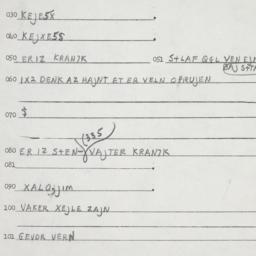 030 KEJESX
040 KEJXESS
050 ER IZ KRANJK 051 S+LAF QGL VEN EJ
060 IXZ DENK AZ HAJNT ET ER VELN OPRUJEN
070 $
(335
080 ER IZ S+EN- VAJTER KRANJK
081
090 XALQJJIM
100 VAKER XEJLE ZAJN
101 GEVOR VERN